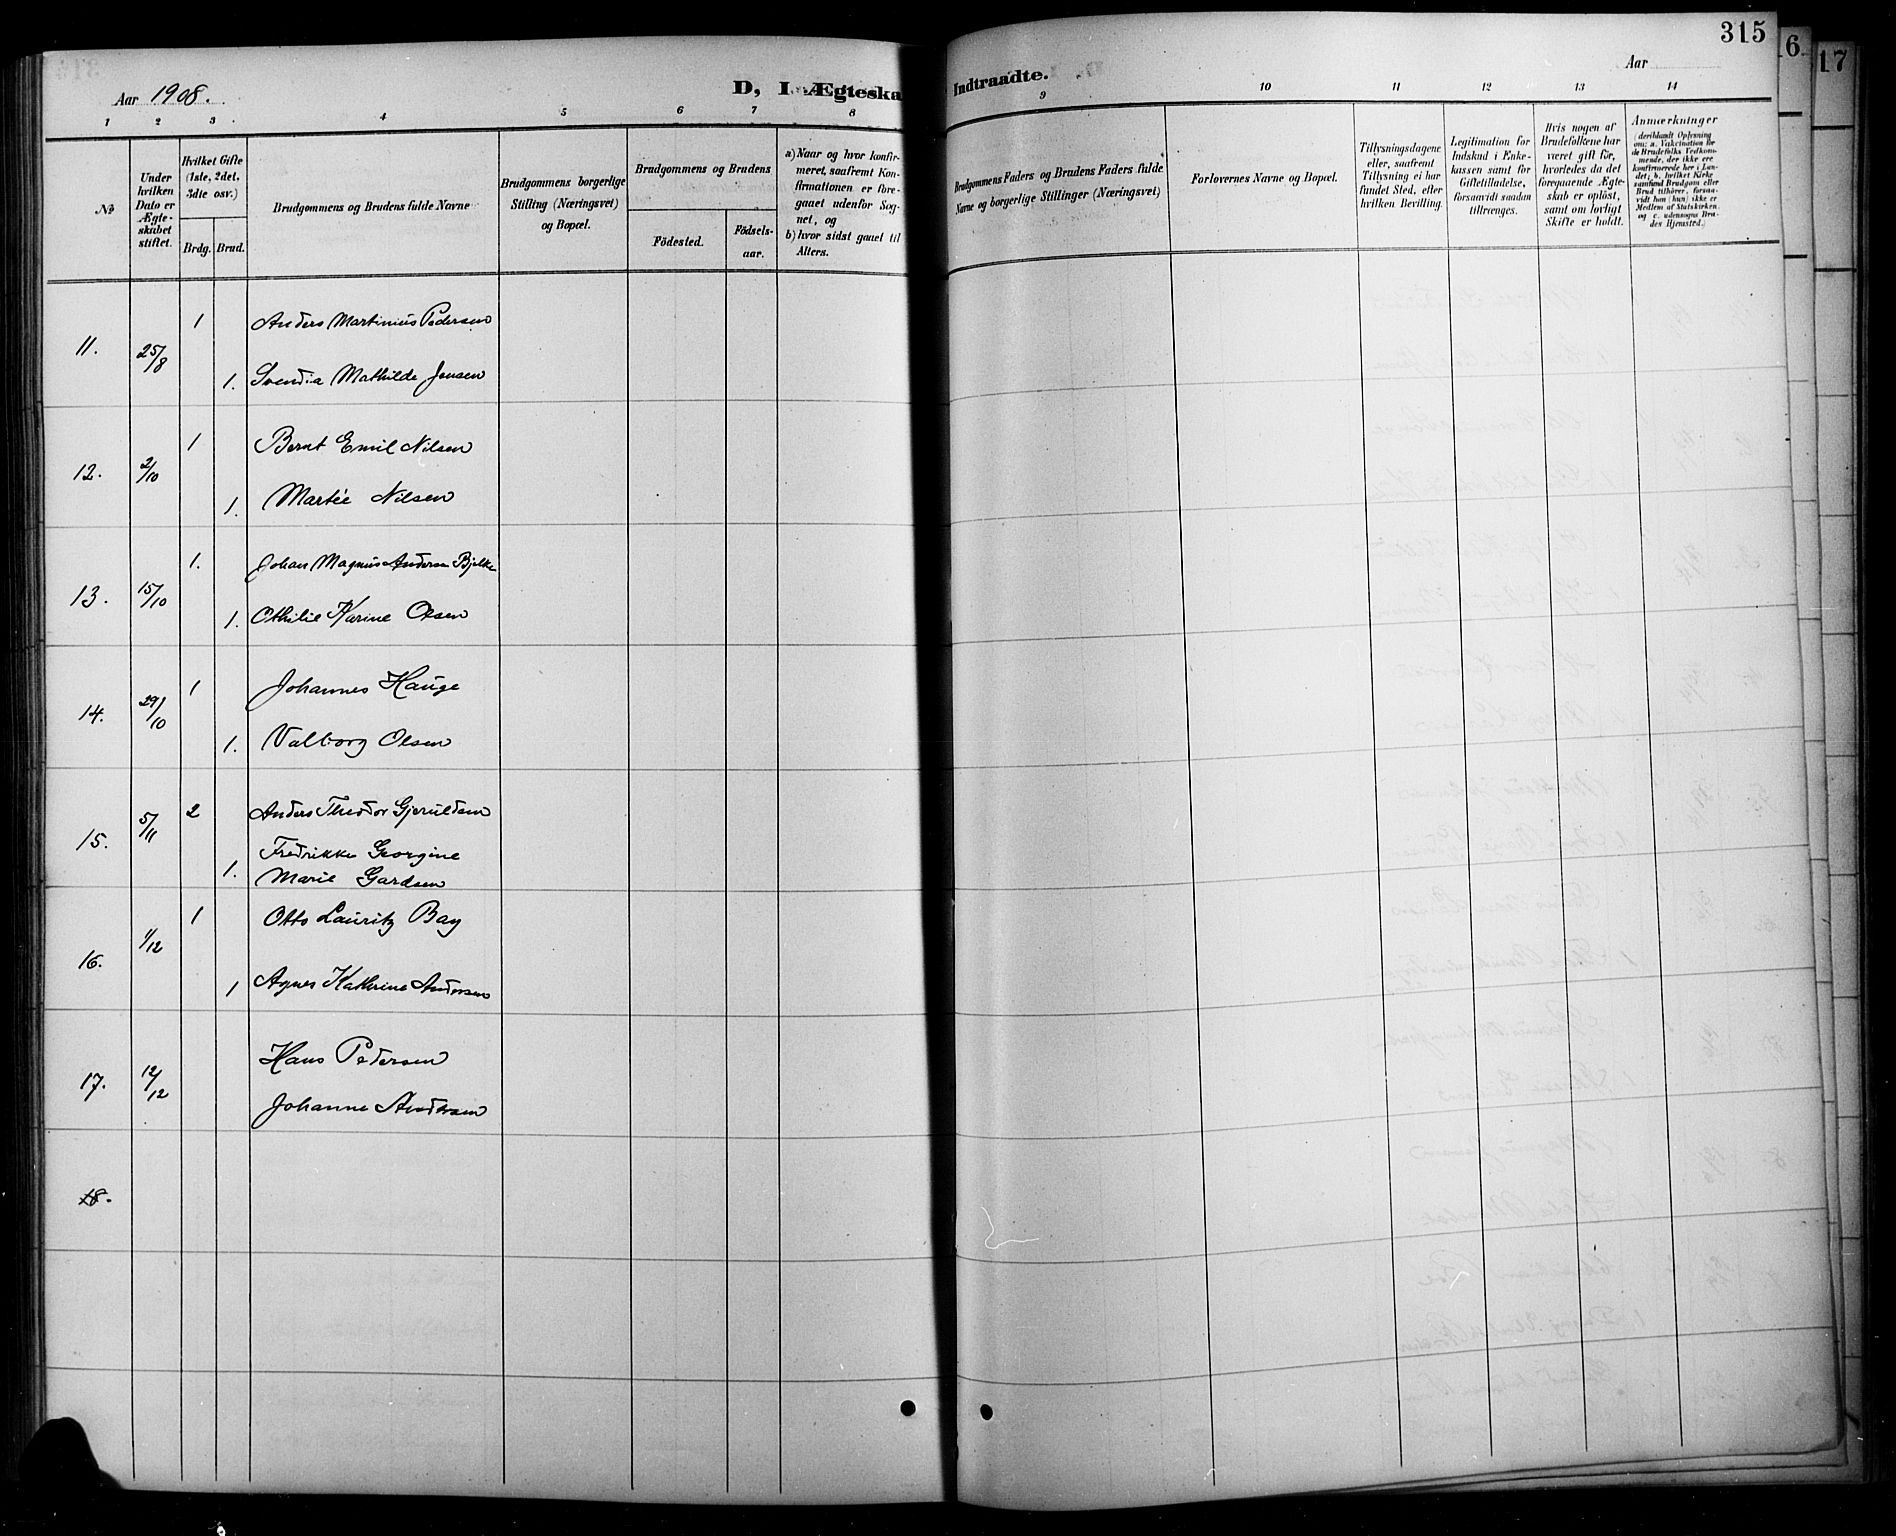 315
6
17
Aar 1908.
D, I. Ægteska
Indtraadte.
Aar
1 2 3 4 5 6 7 8 9 10 11 12 13 14
№
Under hvilken Dato er Ægteskabet stiftet.
Hvilket Gifte (1ste, 2det, 3die osv.)
Brdg. Brud.
Brudgommens og Brudens fulde Navne
Brudgommens borgerlige Stilling (Næringsvei) og Bopæl.
Brudgommens og Brudens
Födested.
Födsels-aar.
a) Naar og hvor konfirmeret, saafremt Konfirmationen er foregaaet udenfor Sognet, og
b) hvor sidst gaaet til Alters.
Brudgommens Faders og Brudens Faders fulde Navne og borgerlige Stillinger (Næringsvei)
Forlovernes Navne og Bopæl.
Tillysningsdagene eller, saafremt Tillysning ei har fundet Sted, efter hvilken Bevilling.
Legitimation for Indskud i Enkekassen samt for Giftetilladelse, forsaavidt saadan tiltrænges.
Hvis nogen af Brudefolkene har været gift för, hvorledes da det foregaaende Ægteskab er oplöst, samt om lovligt Skifte er holdt.
Anmærkninger
(deriblandt Oplysning om: a. Vakcination for de Brudefolks Vedkommende, der ikke ere konfirmerede her i Landet; b. hvilket Kirkesamfund Brudgom eller Brud tilhörer, forsaavidt han (hun) ikke er Medlem af Statskirken, og c. udensogns Brudes Hjemsted.)
11. 25/8 1 Anders Martinius Pedersen
1. Svendia Mathilde Jensen
12. 2/10 1 Bernt Emil Nilsen
1. Martée Nilsen
13. 15/10 1. Johan Magnus Andersen Bjelke
1. Othilie Karine Olsen
14. 29/10 1 Johannes Hauge
1. Valborg Olsen
15. 5/11 2 Anders Theodor Gjeruldsen
1. Fredrikke Georgine
Marie Gardsen
16. 1/12 1 Otto Lauritz Bay
1 Agnes Kathrine Andersen
17. 12/12 Hans Pedersen
Johanne Andersen
18.